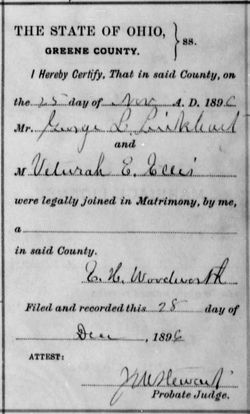 THE STATE OF OHIO,
GREENE COUNTY. } SS.
I Hereby Certify, That in said County, on
the 25 day of Nov A. D. 1896
Mr. George L.
and
M Velurah E. Ellis
were legally joined in Matrimony, by me,
a
in said County.
E. H. Woodworth
Filed and recorded this 28 day of
Dec 1896
ATTEST:
J N Stewart
Probate Judge.